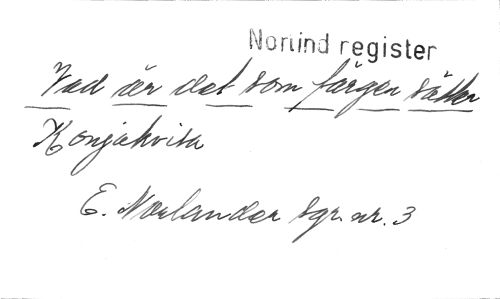 Norlind register
Vad är det som färgen sätter
Konjakvisa
E. Norlander sgr. nr. 3